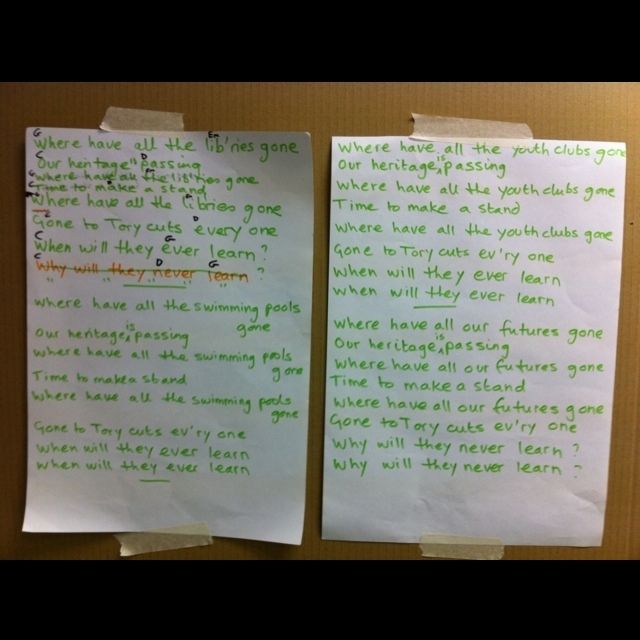 G Em
Where have all the lib'ries gone
C D
Our heritage is passing
Where have all the lib'ries gone
Time to make a stand
Where have all the libries gone
C D
Gone to Tory cuts every one
C G
When will they ever learn?
C D G
Why will they never learn?
Where have all the swimming pools
gone
is
Our heritage passing
Where have all the swimming pools
gone
Time to make a stand
Where have all the swimming pools
gone
Gone to Tory cuts ev'ry one
When will they ever learn
When will they ever learn
Where have all the youth clubs gone
is
Our heritage passing
Where have all the youth clubs gone
Time to make a stand
Where have all the youth clubs gone
Gone to Tory cuts ev'ry one
When will they ever learn
When will they ever learn
Where have all our futures gone
is
Our heritage passing
Where have all our futures gone
Time to make a stand
Where have all our futures gone
Gone to Tory cuts ev'ry one
Why will they never learn?
Why will they never learn?